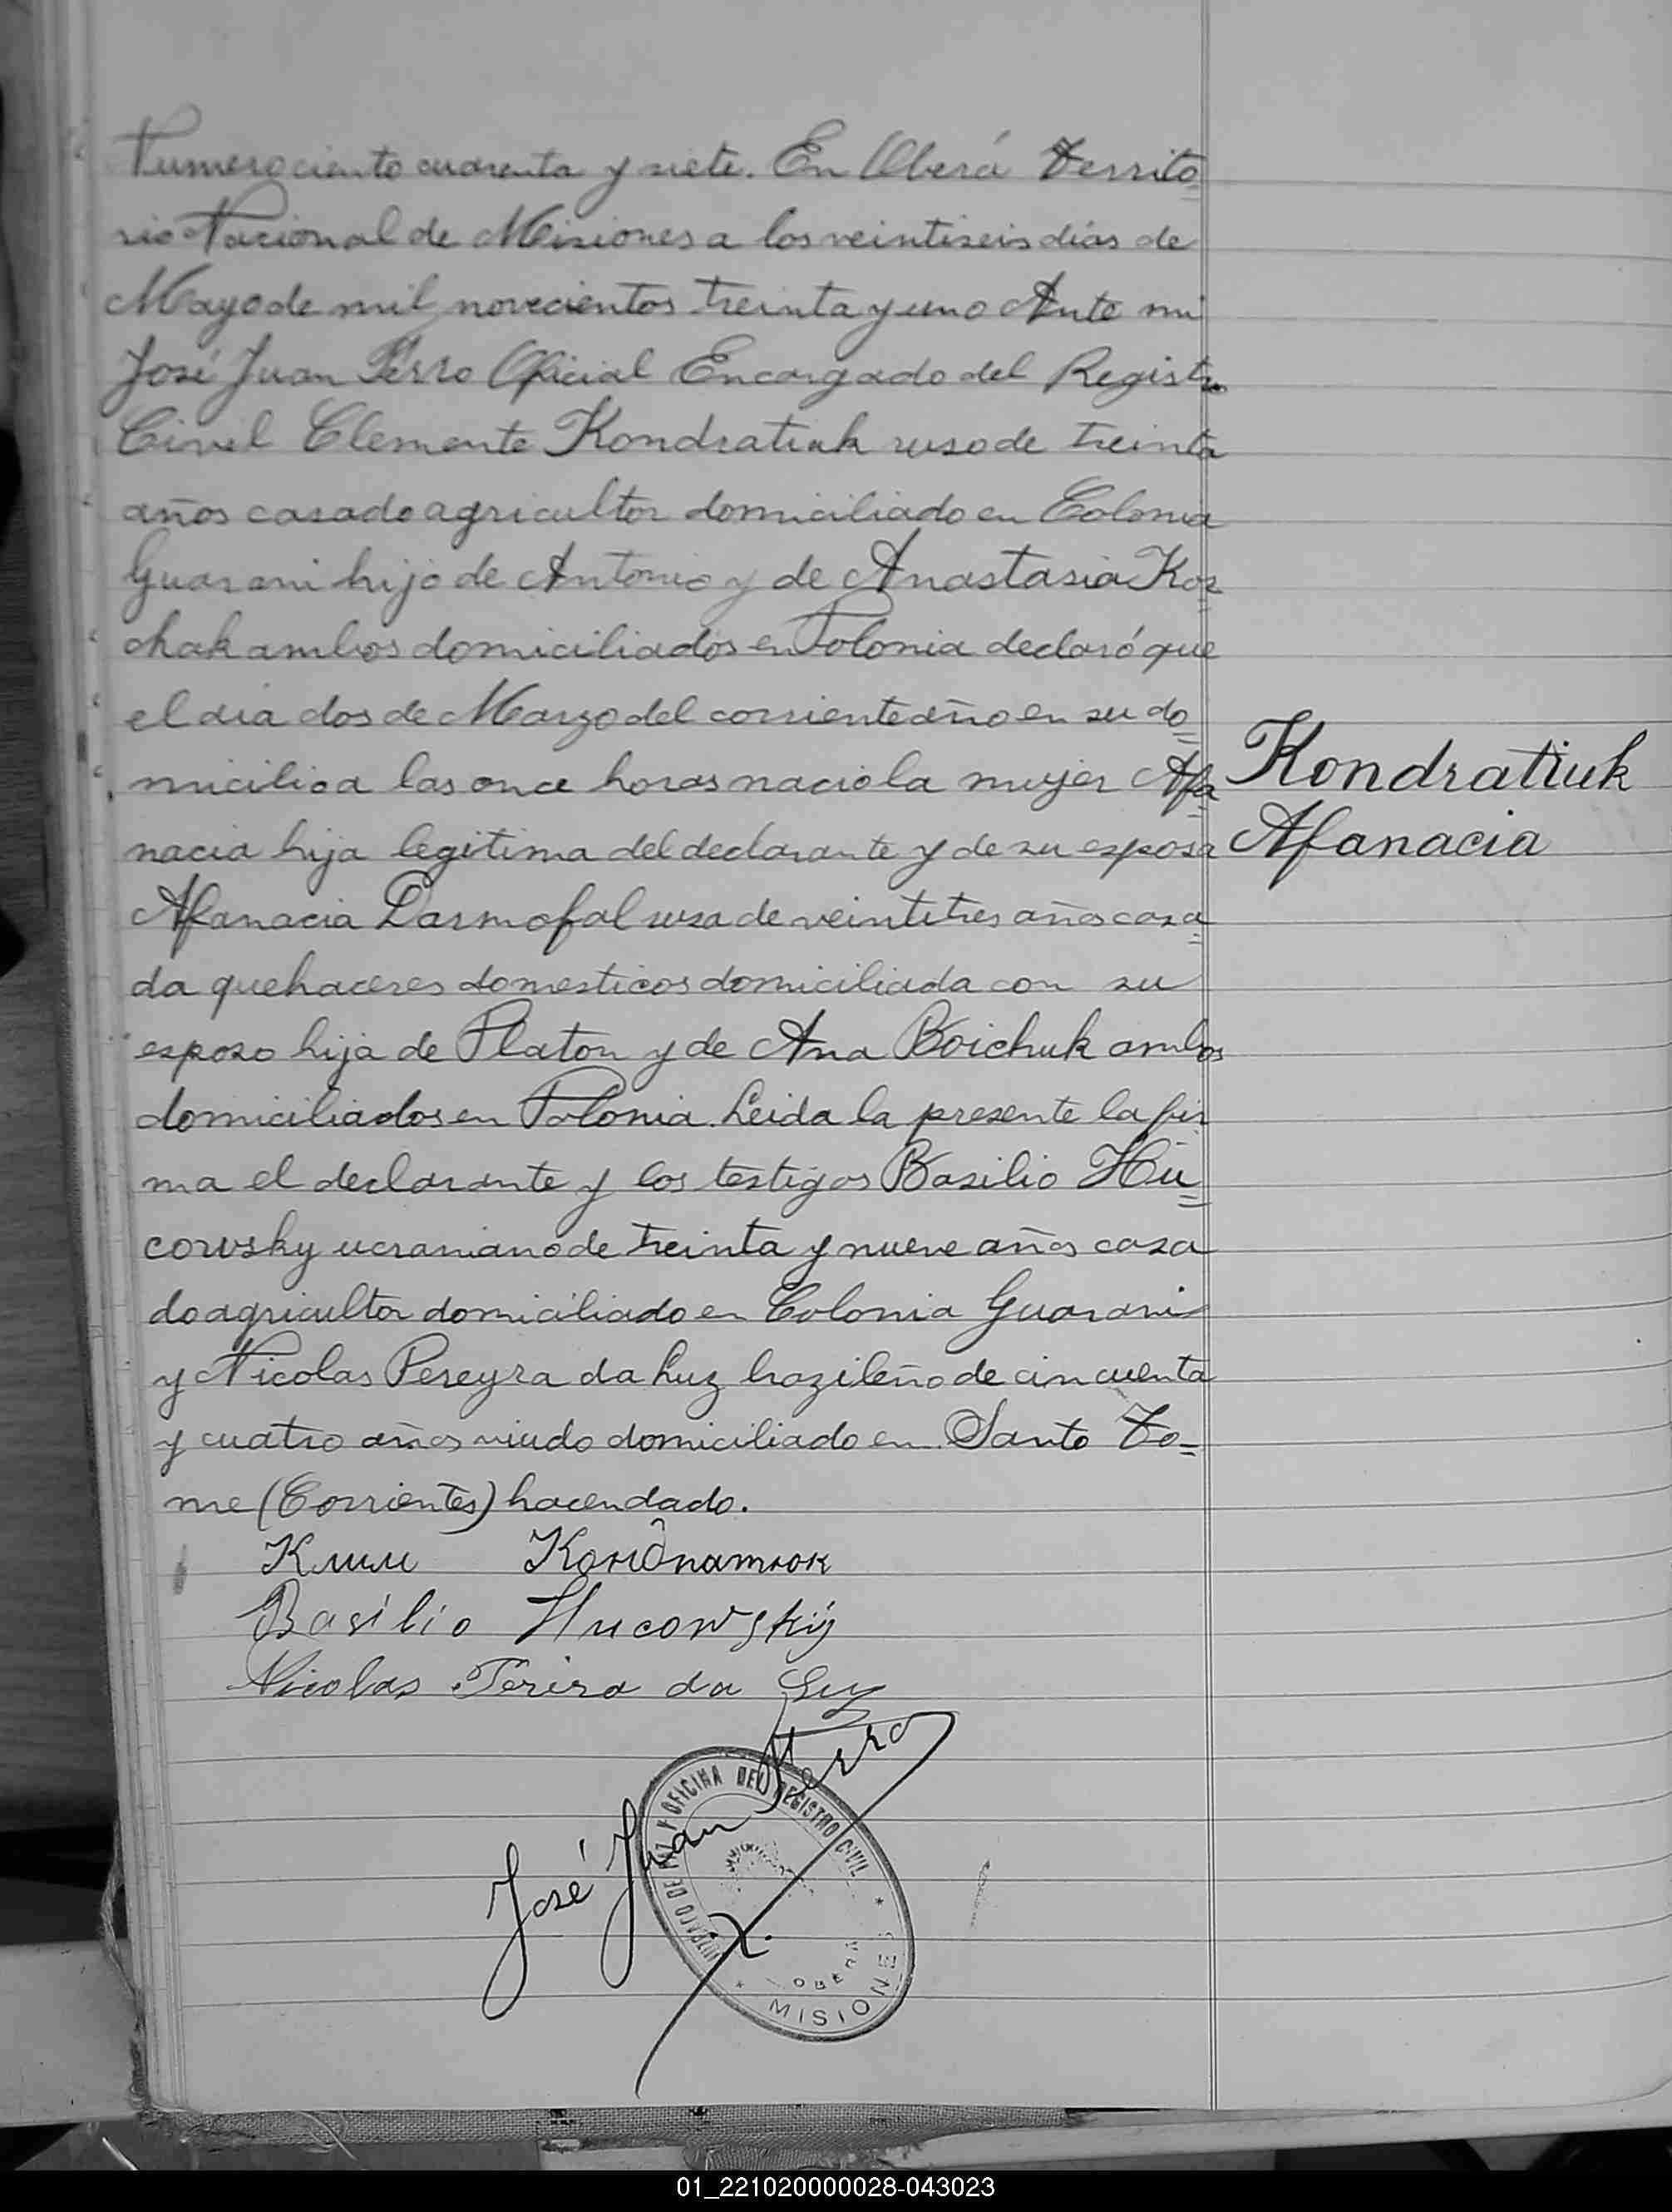 Numero ciento cuarenta y siete. En Oberá Territo
rio Nacional de Misiones a los veintiseis dias de
Mayo de mil novecientos treinta y uno Ante mi
José Juan Ferro Oficial Encargado del Registro
Civil Clemente Kondratiuk ruso de treinta
años casado agricultor domiciliado en Colonia
Guarani hijo de Antonio y de Anastasia Kor
chak ambos domiciliados en Polonia declaró que
el dia dos de Marzo del corriente año en su do
micilio a las once horas nacio la mujer Afa
Kondratiuk
nacia hija legitima del declarante y de su esposa
Afanacia
Afanacia Darmofal rusa de veintitres años casa
da quehaceres domesticos domiciliada con su
esposo hija de Platon y de Ana Boichuk ambos
domiciliados en Polonia. Leida la presente la fir
ma el declarante y los testigos Basilio Hu
cowsky ucraniano de treinta y nueve años casa
do agricultor domiciliado en Colonia Guarani
y Nicolas Pereyra da Luz brazileño de cincuenta
y cuatro años viudo domiciliado en Santo To-
me (Corrientes) hacendado.
Клим Кондратюк
Basilio Hucowskij
Nicolas Pereira da Luz
José Juan Ferro
JUZGADO DE PAZ Y OFICINA DEL REGISTRO CIVIL
OBERA
MISIONES
01_221020000028-043023